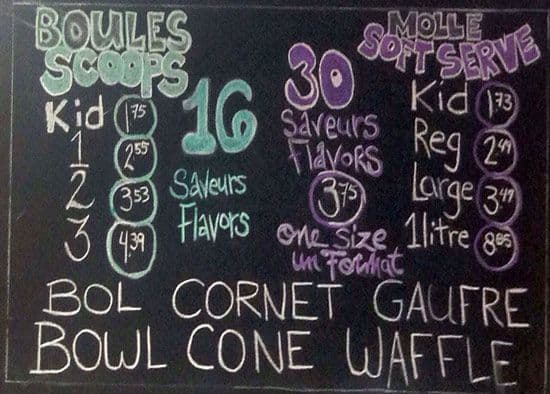 BOULES
SCOOPS
Kid 1.75
1 2.55
2 3.53
3 4.39
16
Saveurs
Flavors
30
Saveurs
Flavors
3.75
one size
un Format
MOLLE
SOFT SERVE
Kid 1.73
Reg 2.49
Large 3.49
1litre 8.85
BOL CORNET GAUFRE
BOWL CONE WAFFLE